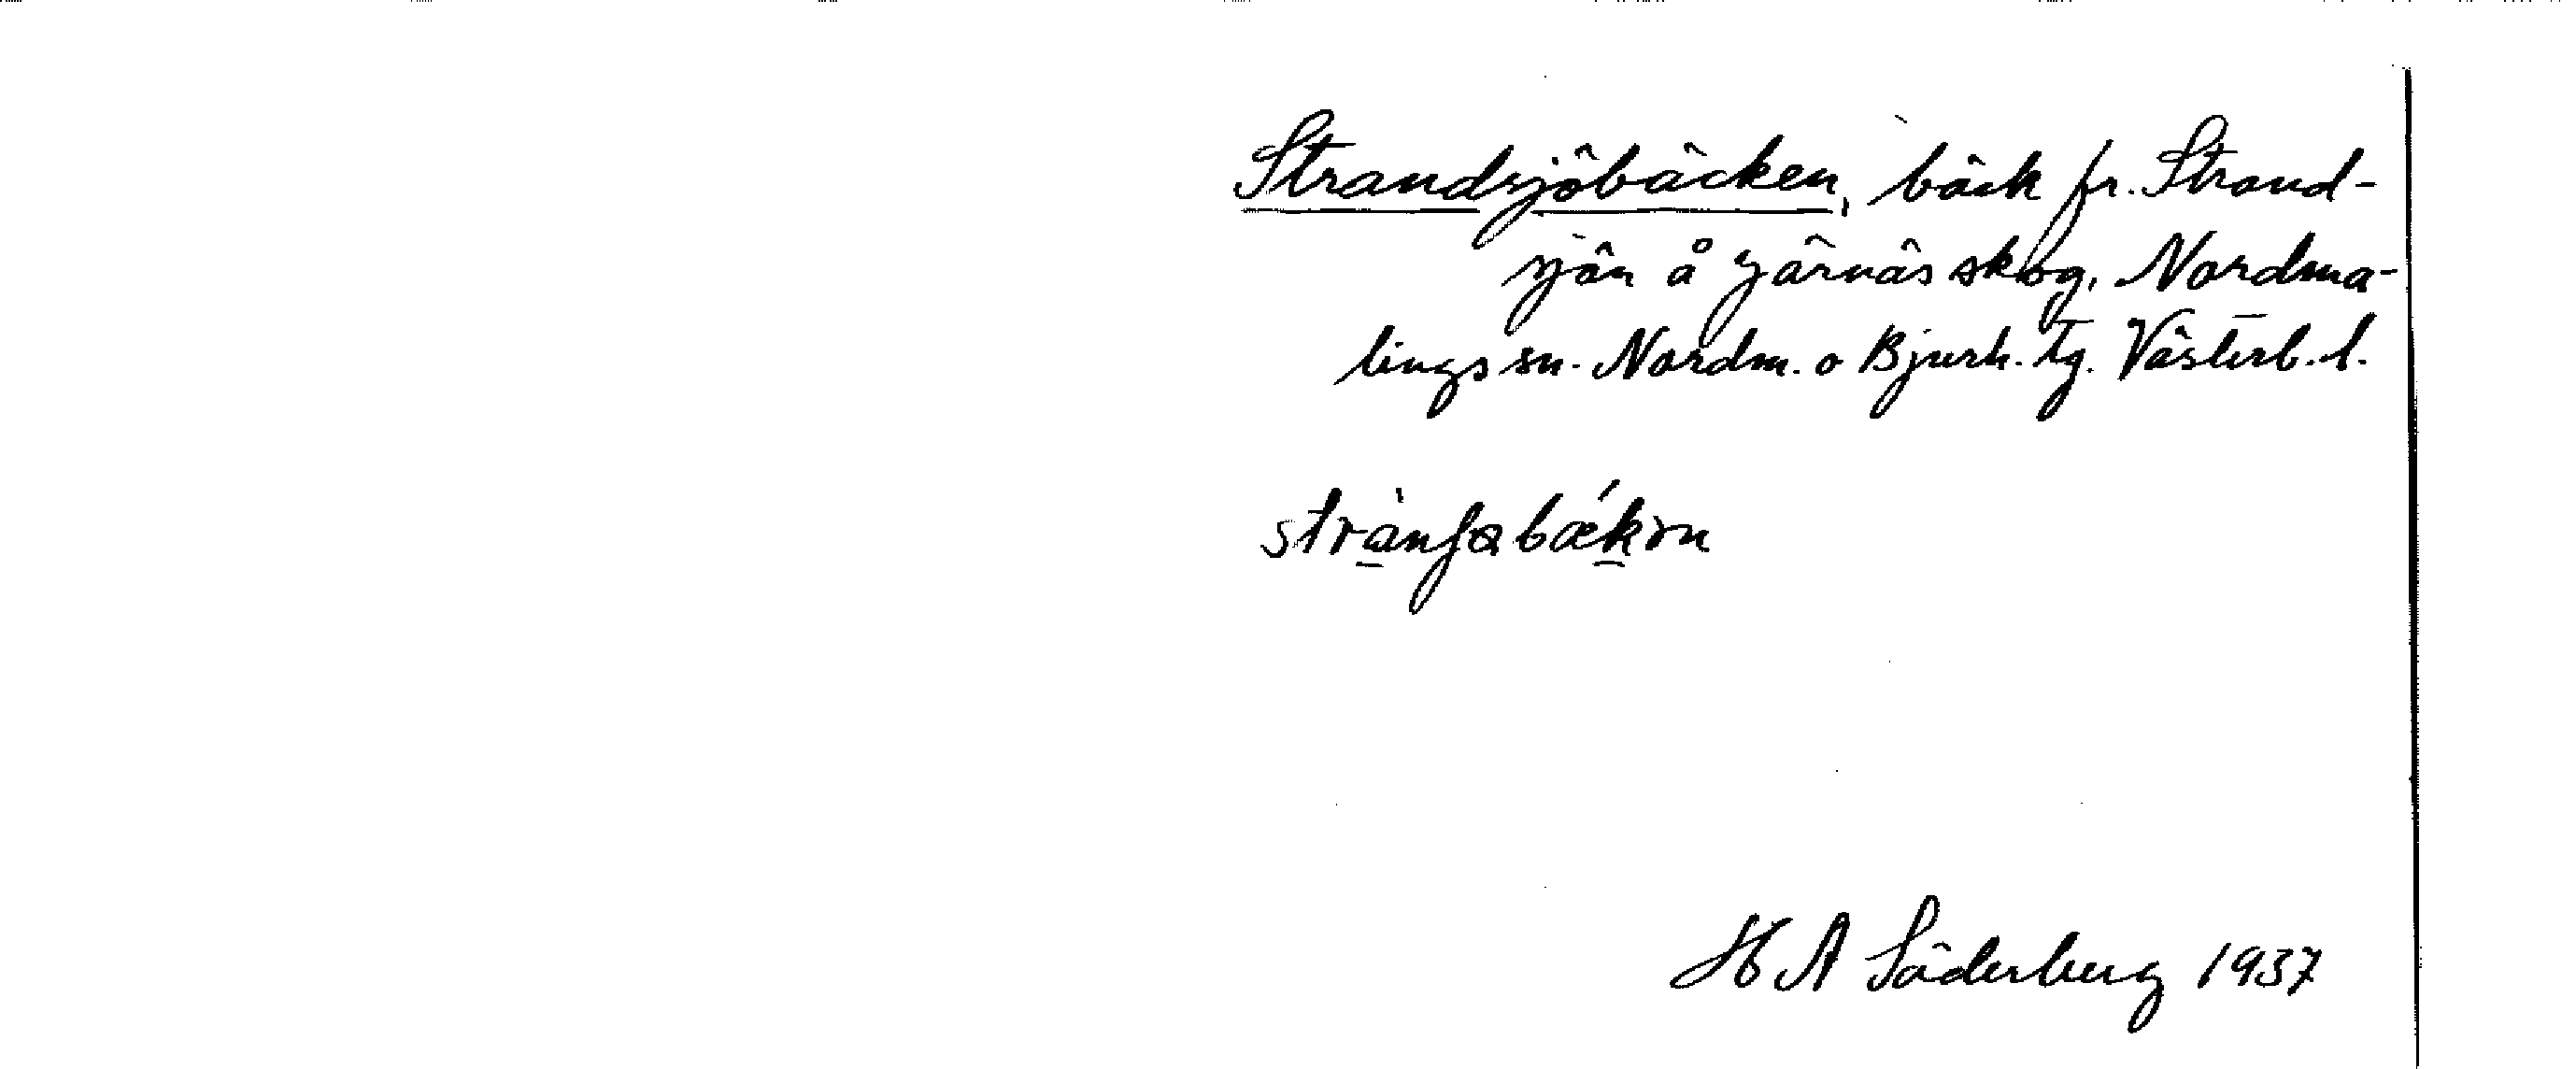 Strandsjöbäcken, bäck fr. Strand-
sjön å Järnäs skog, Nordma-
lings sn. Nordm. o Bjurh. tg. Västerb. l.
H A Söderberg 1937